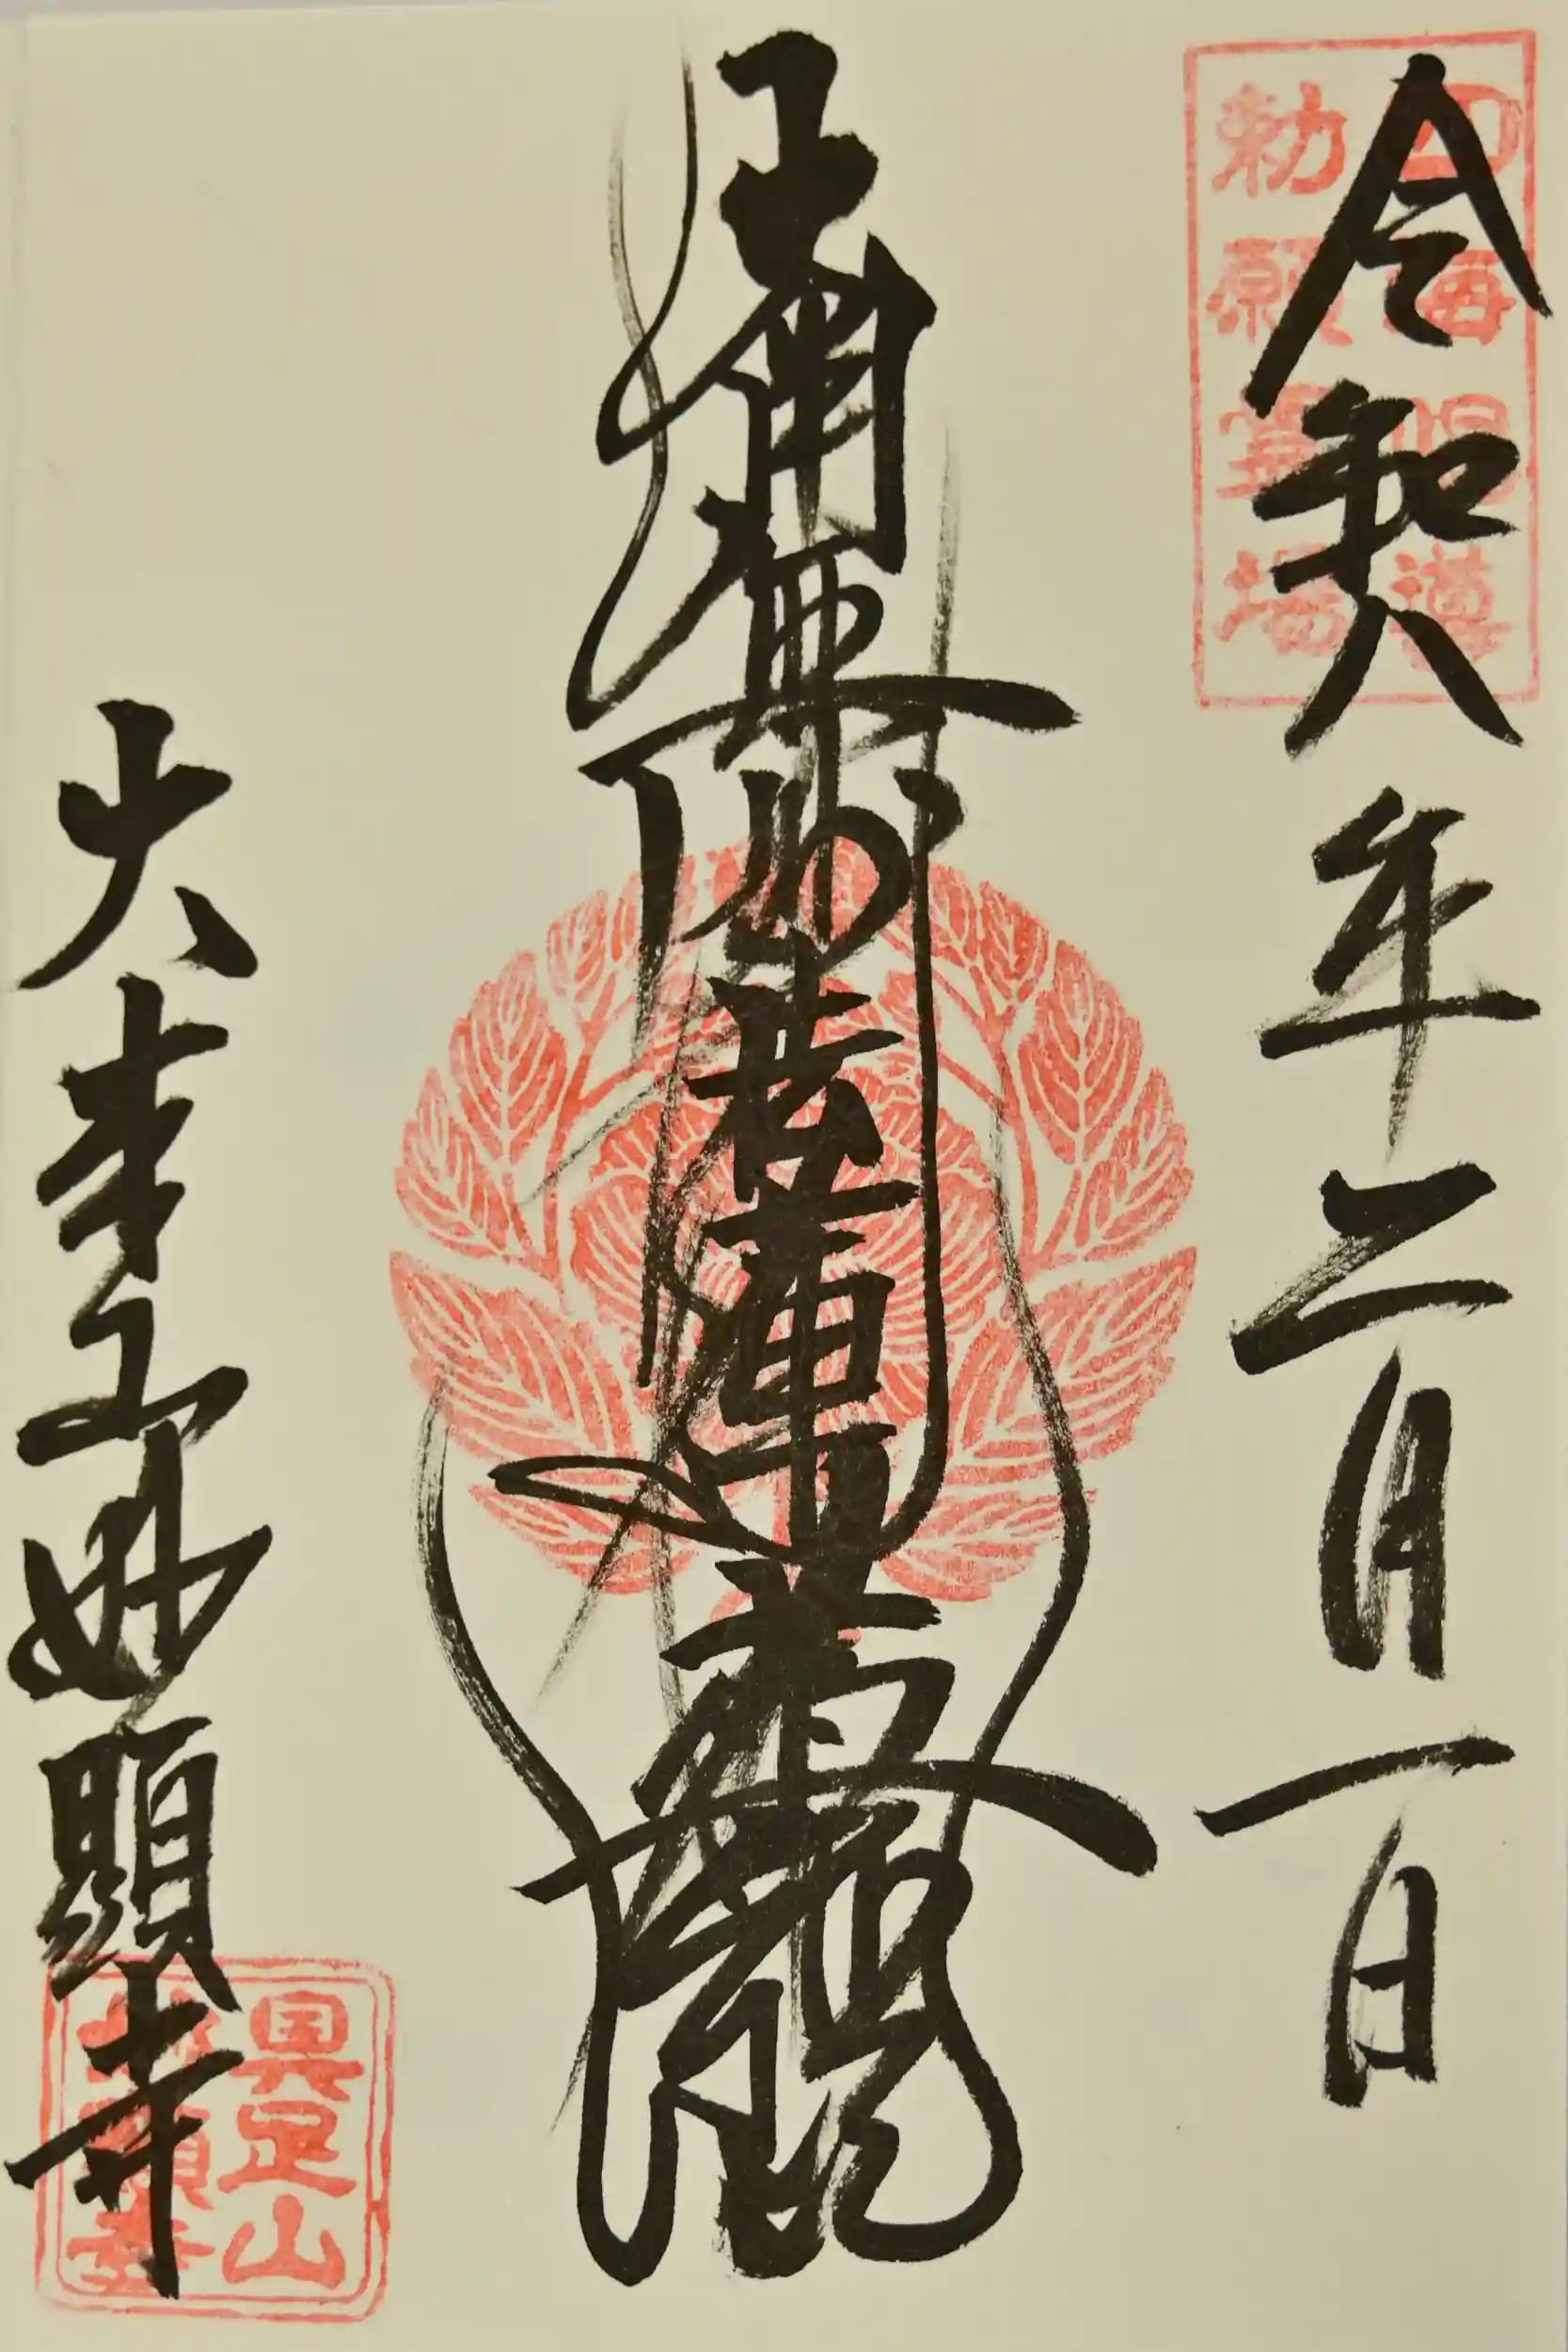 四海唱導
勅願靈場
令和八年二月一日
南無妙法蓮華経
大本山妙顯寺
具足山
妙顯寺